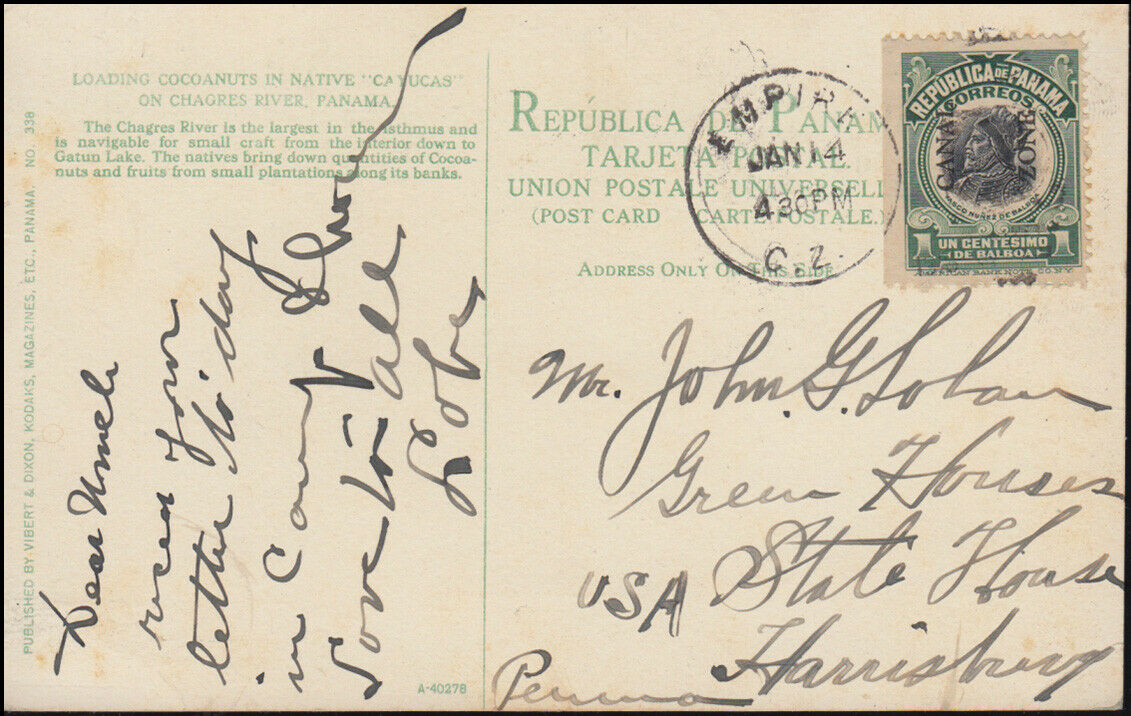 LOADING COCOANUTS IN NATIVE "CAYUCAS"
ON CHAGRES RIVER, PANAMA.
The Chagres River is the largest in the Isthmus and
is navigable for small craft from the interior down to
Gatun Lake. The natives bring down quantities of Cocoa-
nuts and fruits from small plantations along its banks.
PUBLISHED BY VIBERT & DIXON, KODAKS, MAGAZINES, ETC., PANAMA. NO. 338
Dear Uncle
recd your
letter to-day
in Camp
Love to all
A-40278
REPÚBLICA DE PANAMÁ
TARJETA POSTAL.
UNION POSTALE UNIVERSELLE
(POST CARD CARTE POSTALE.)
ADDRESS ONLY ON THIS SIDE
EMPIRE
JAN 14
4 30 PM
C.Z.
REPÚBLICA DE PANAMA
CORREOS
CANAL ZONE
VASCO NUÑEZ DE BALBOA
1 UN CENTESIMO 1
(DE BALBOA)
AMERICAN BANK NOTE CO. N.Y.
Mr. John. G. Loban
Green Houses
State House
USA
Harrisburg
Penna